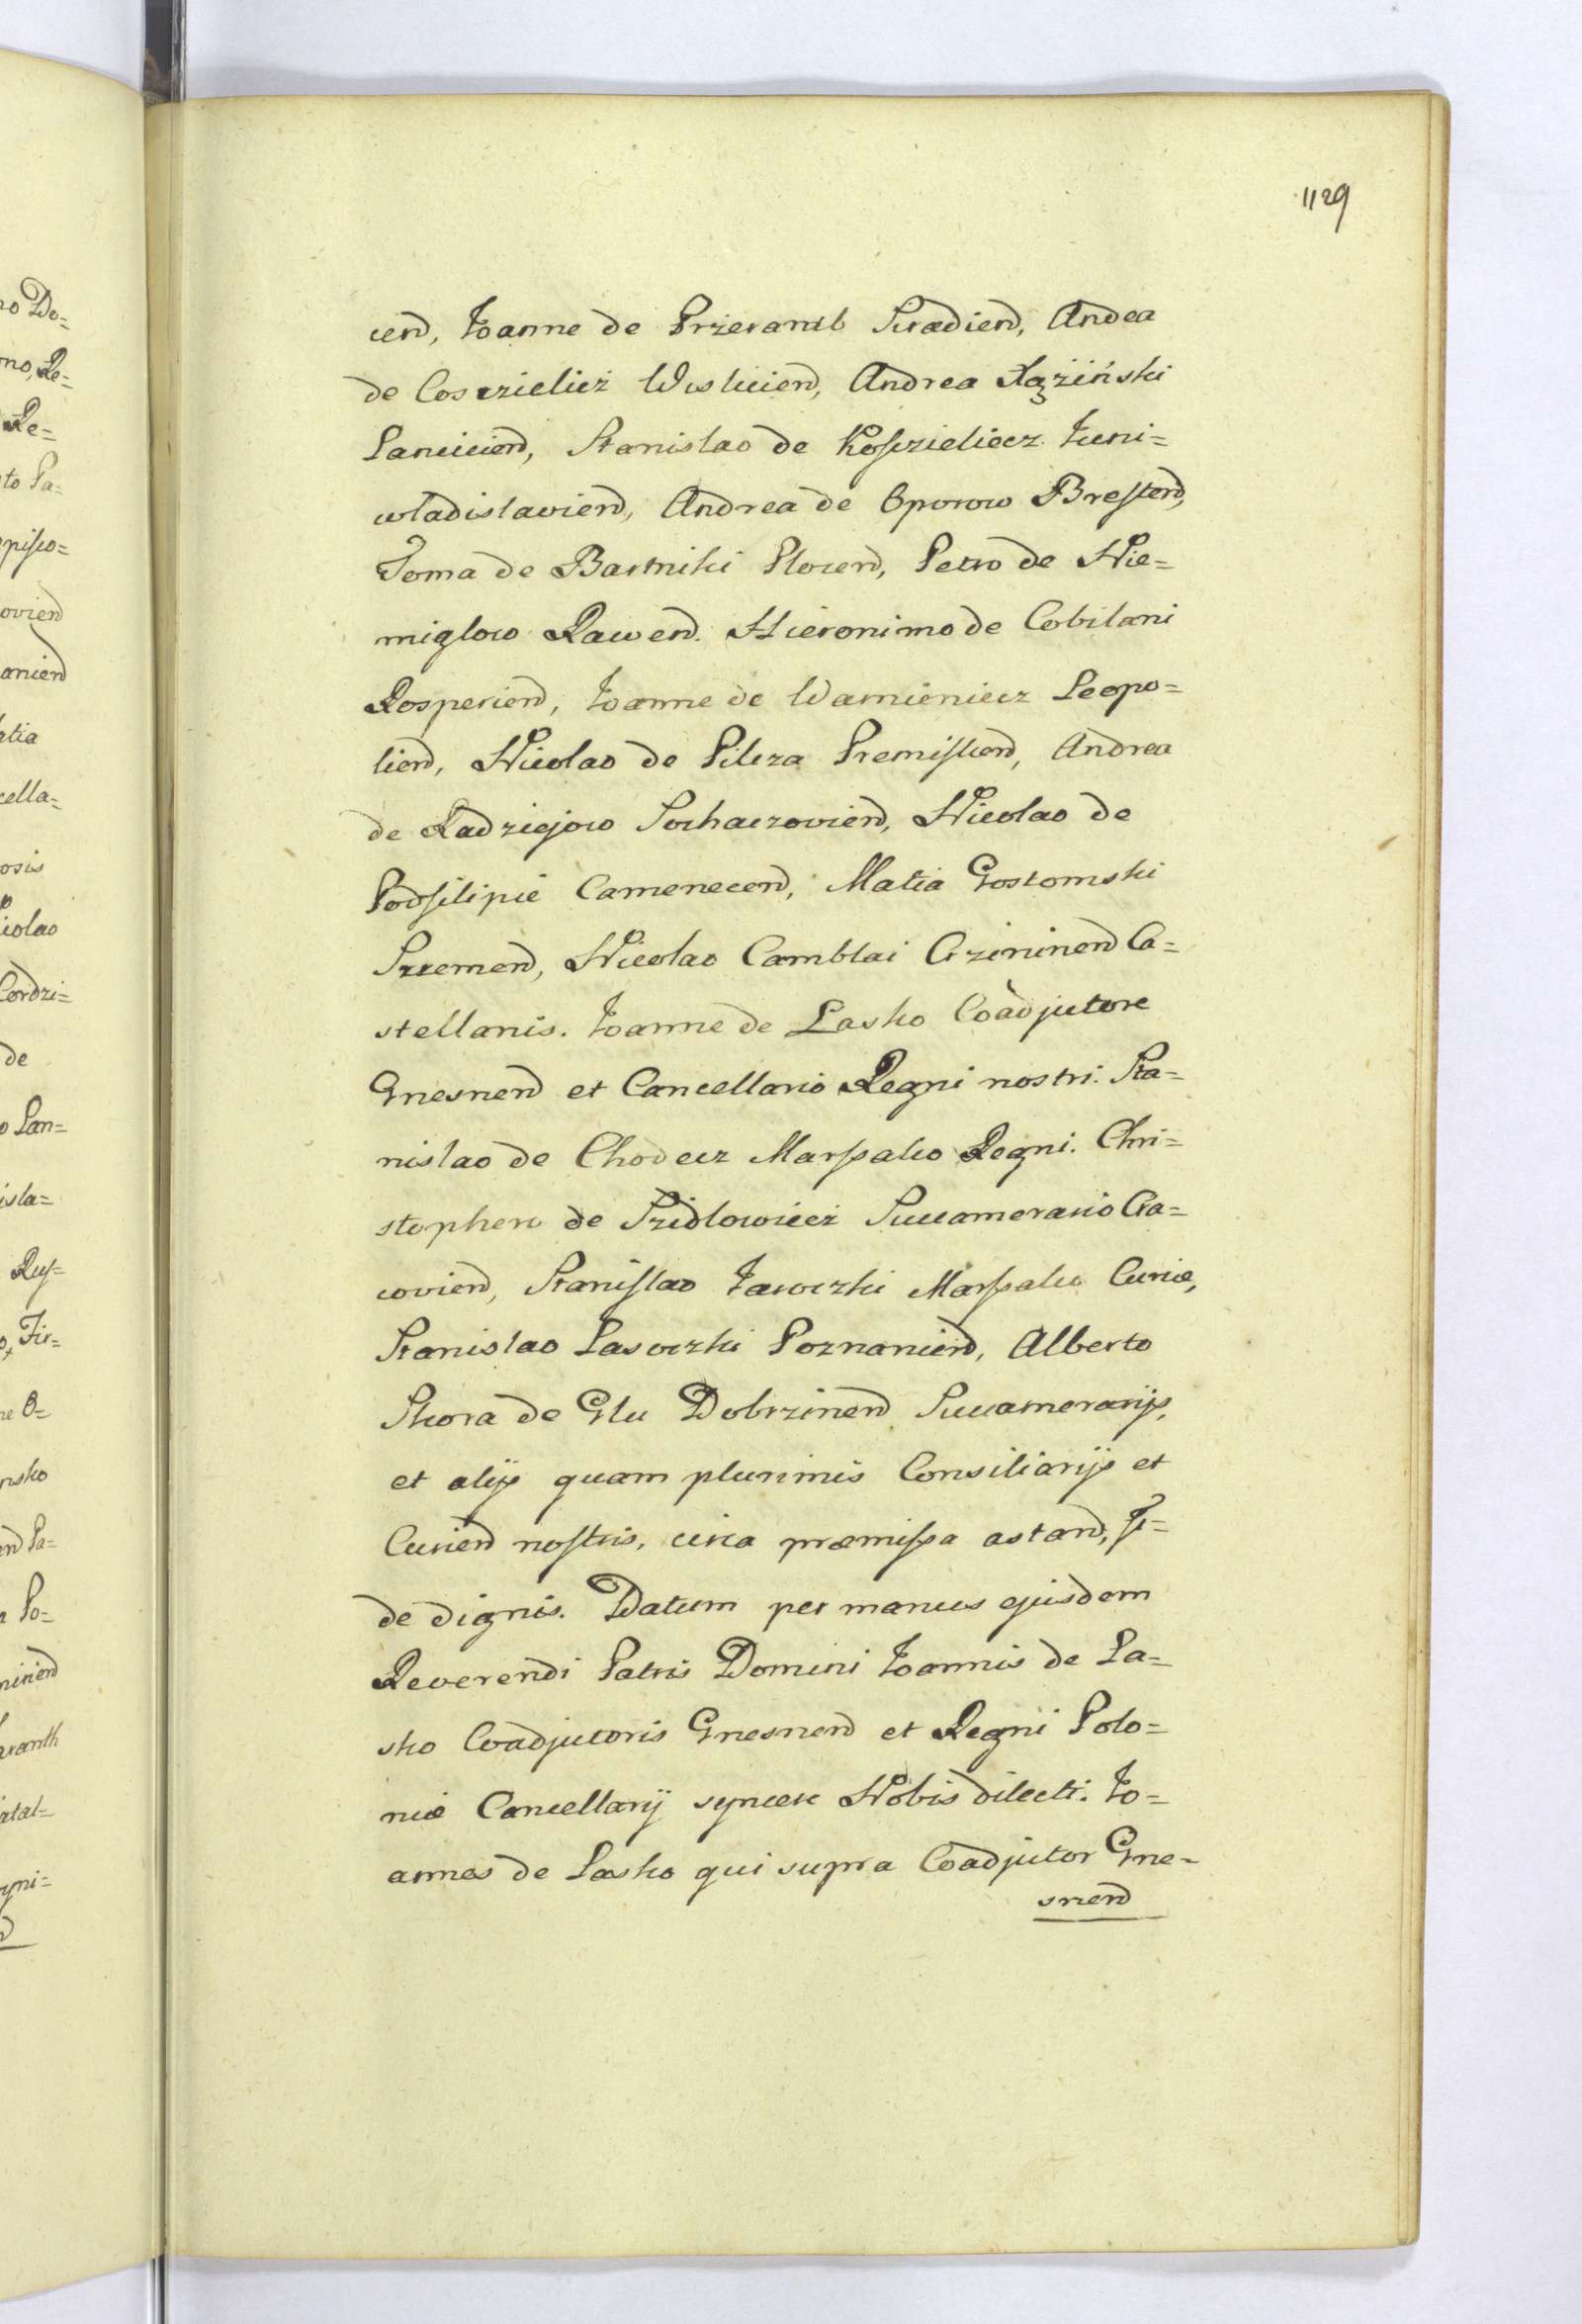 1129
cend, Joanne de Przeramb Siradiend, Andea
de Cosczieliez Wisliciend, Andrea Xąziński
Lanciciend, Stanislao de Kosczieliecz Juni=
wladislaviend, Andrea de Oporow Brestend,
Toma de Bartniki Plocend, Petro de Nie=
miglow Rawend. Hieronimo de Cobilani
Rosperiend, Joanne de Wamieniecz Leopo=
liend, Nicolao de Pilcza Premisliend, Andrea
de Radziejow Sochaczoviend, Nicolao de
Podfilipie Camenecend, Matia Gostomski
Srzemend, Nicolao Camblai Crzininend Ca=
stellanis. Joanne de Lasko Coadjutore
Gnesnend et Cancellario Regni nostri. Sta=
nislao de Chodecz Marsalco Regni. Chri=
stophero de Szidlowiecz Succamerario Cra=
coviend, Stanislao Jaroczki Marsalco Curiæ,
Stanislao Lasoczki Poznaniend, Alberto
Skora de Glu Dobrzinend Succamerarijs,
et alijs quam plurimis Consiliarijs et
Curiend nostris, circa præmissa astand, fi=
de dignis. Datum per manus ejusdem
Reverendi Patris Domini Joannis de La=
sko Coadjutoris Gnesnend et Regni Polo=
niæ Cancellarij syncere Nobis dilecti. Jo=
annes de Lasko qui supra Coadjutor Gne=
snend